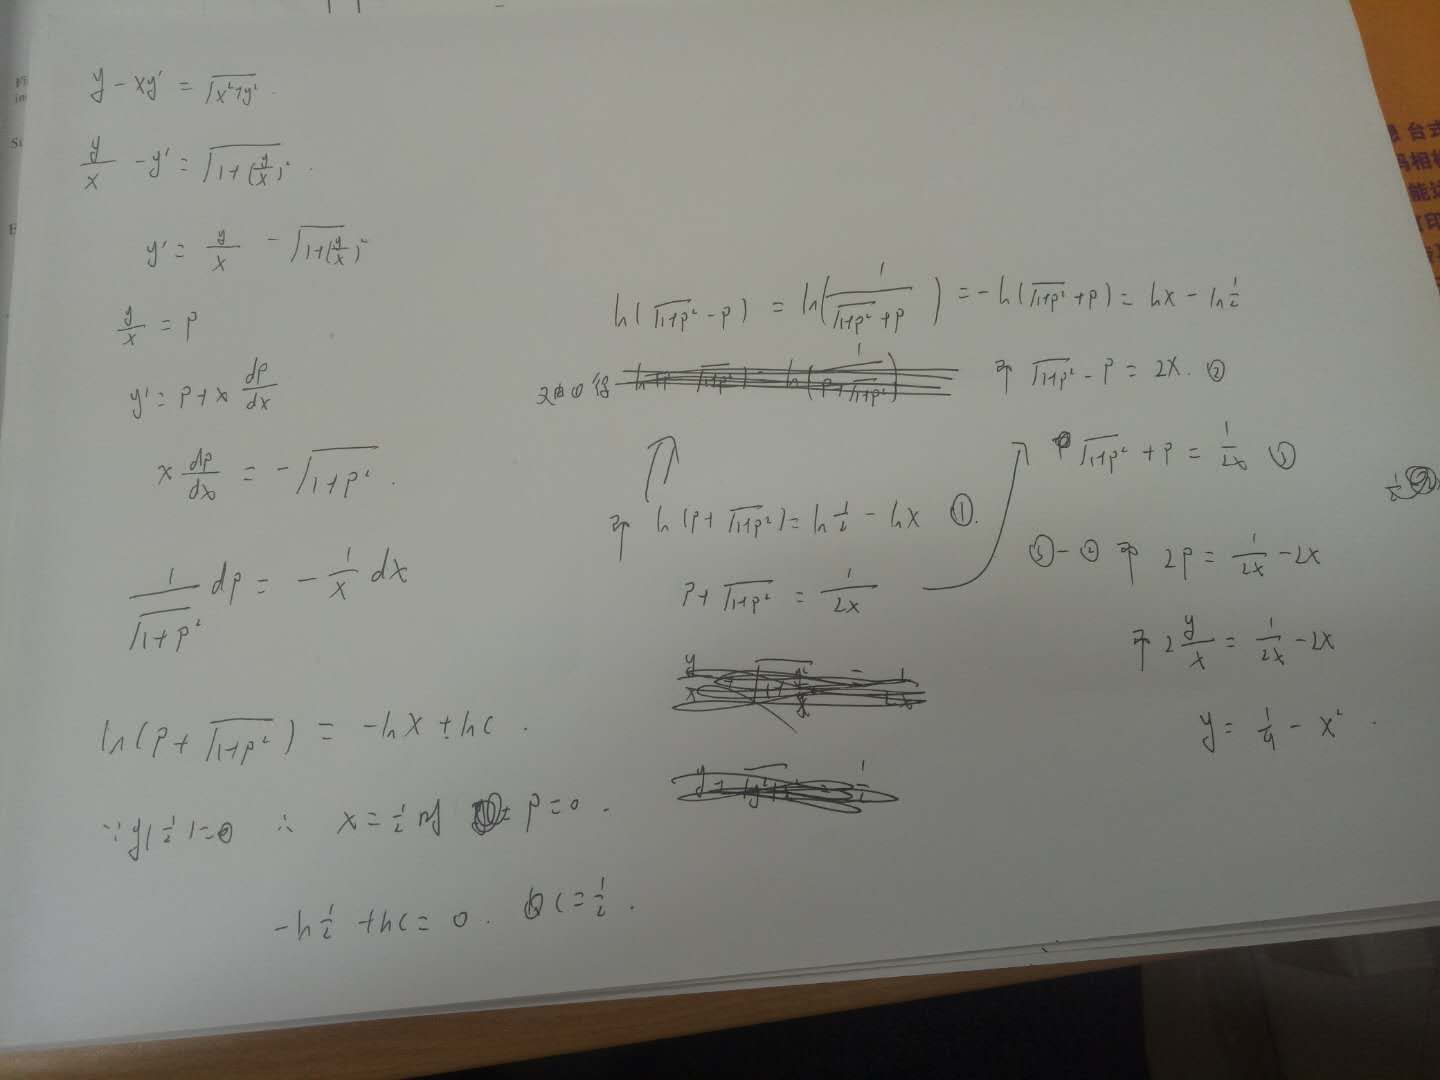 y - xy' = √(x²+y²).
y/x - y' = √(1+(y/x)²).
y' = y/x - √(1+(y/x)²)
y/x = p
y' = p + x dp/dx
x dp/dx = -√(1+p²).
1/√(1+p²) dp = -1/x dx
ln(p+√(1+p²)) = -lnx + lnc.
∵ y(1/2)=0 ∴ x=1/2时 p=0.
-ln1/2 + lnc = 0. c=1/2.
ln(√(1+p²)-p) = ln(1/(√(1+p²)+p)) = -ln(√(1+p²)+p) = lnx - ln1/2
又由①得
⇒ ln(p+√(1+p²)) = ln1/2 - lnx ①.
p+√(1+p²) = 1/2x
⇒ √(1+p²)-p = 2x. ②
√(1+p²)+p = 1/2x ③
③-② ⇒ 2p = 1/2x - 2x
⇒ 2y/x = 1/2x - 2x
y = 1/4 - x².
台式
码相机
能达
打印